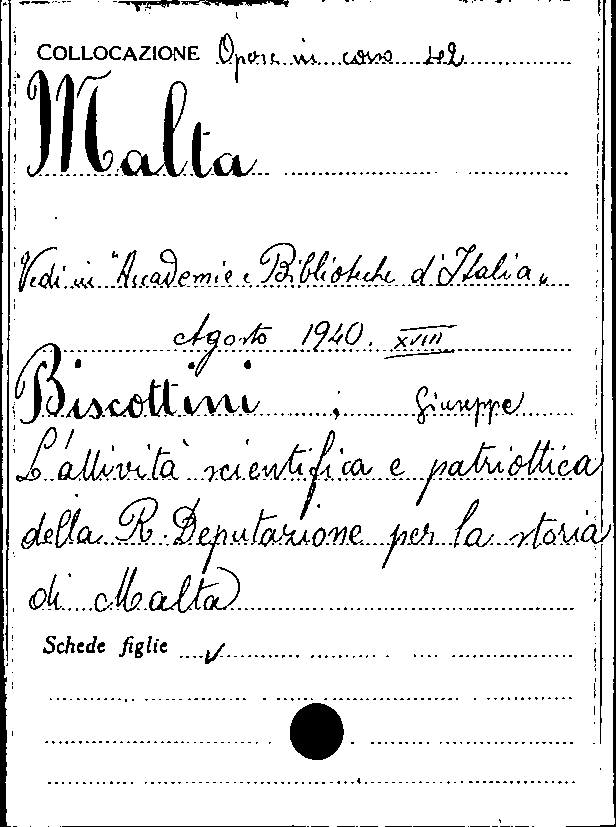 COLLOCAZIONE Opere in corso 42
Malta
Vedi in "Accademie e Biblioteche d'Italia"
Agosto 1940. XVIII
Biscottini ; Giuseppe
L'attività scientifica e patriottica
della R. Deputazione per la storia
di Malta
Schede figlie